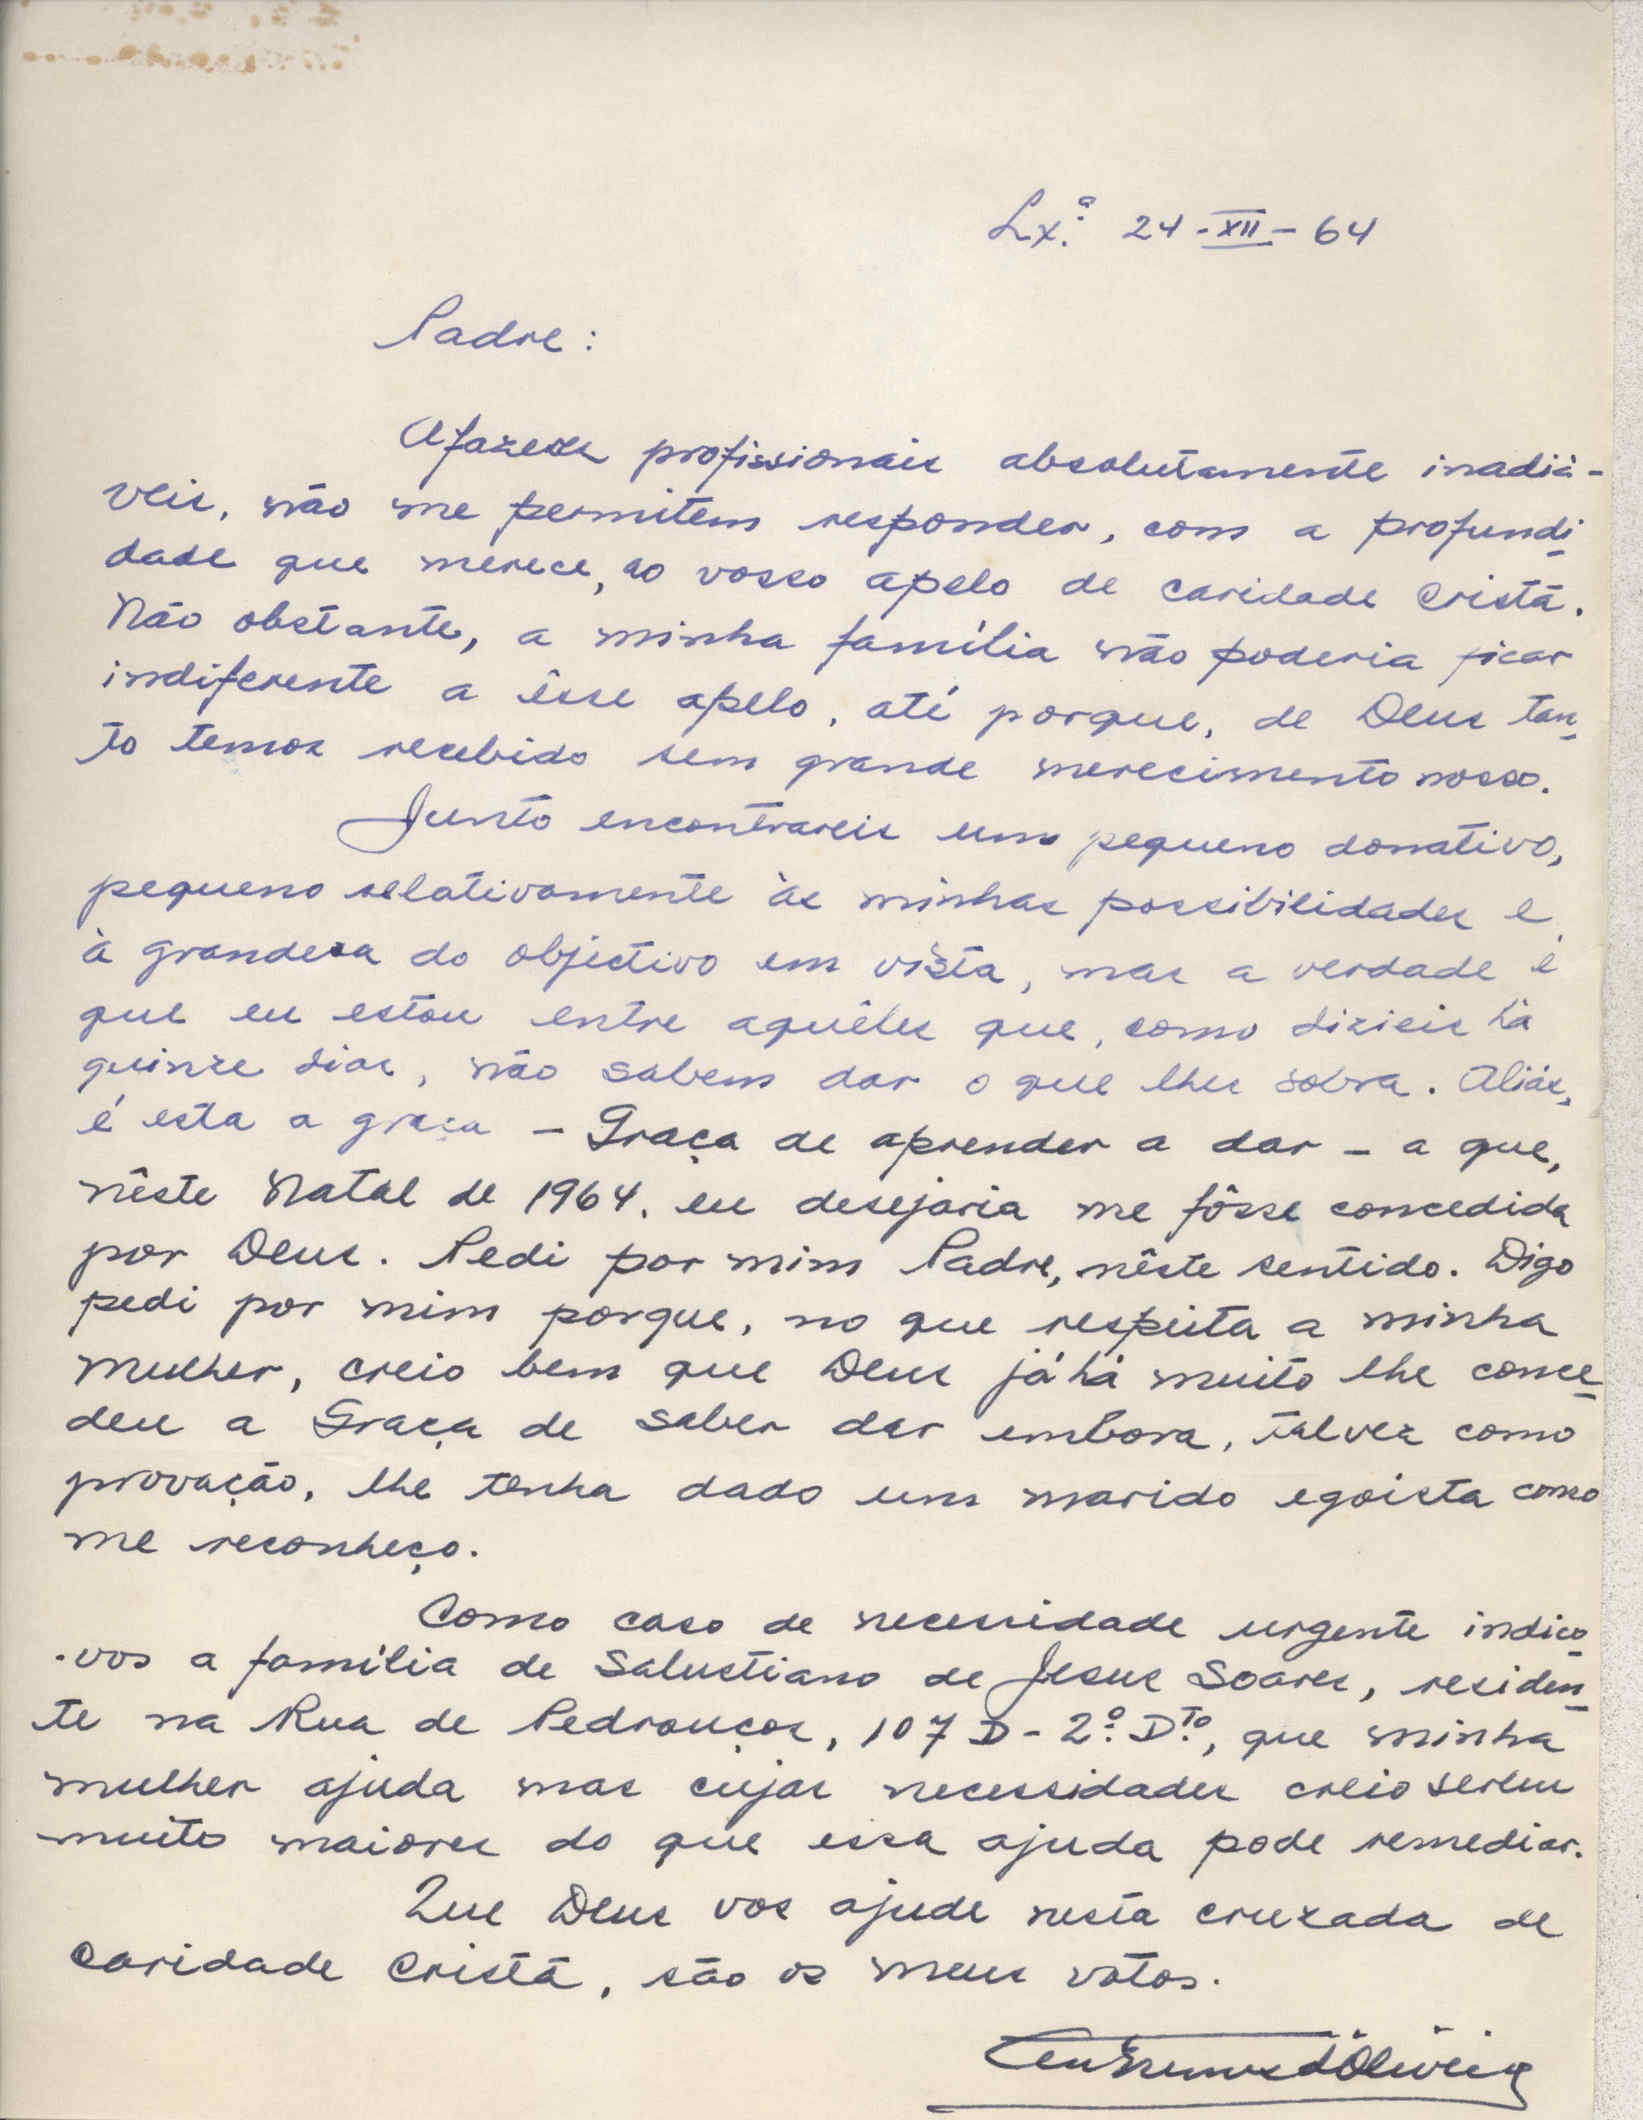 Lx.ª 24-XII-64
Padre:
Afazeres profissionais absolutamente inadiá-
veis, não me permitem responder, com a profundi-
dade que merece, ao vosso apelo de caridade cristã.
Não obstante, a minha família não poderia ficar
indiferente a êsse apelo, até porque, de Deus tan-
to temos recebido sem grande merecimento nosso.
Junto encontrareis um pequeno donativo,
pequeno relativamente às minhas possibilidades e
à grandesa do objectivo em vista, mas a verdade é
que eu estou entre aquêles que, como dizieis há
quinze dias, não sabem dar o que lhes sobra. Aliás,
é esta a graça - Graça de aprender a dar - a que,
nêste Natal de 1964, eu desejaria me fôsse concedida
por Deus. Pedi por mim Padre, nêste sentido. Digo
pedi por mim porque, no que respeita a minha
mulher, creio bem que Deus já há muito lhe conce-
deu a Graça de saber dar embora, talvez como
provação, lhe tenha dado um marido egoista como
me reconheço.
Como caso de necessidade urgente indico
-vos a família de Salustiano de Jesus Soares, residen-
te na Rua de Pedrouços, 107 D - 2.º D.to, que minha
mulher ajuda mas cujas necessidades creio serem
muito maiores do que essa ajuda pode remediar.
Que Deus vos ajude nesta cruzada de
caridade cristã, são os meus votos.